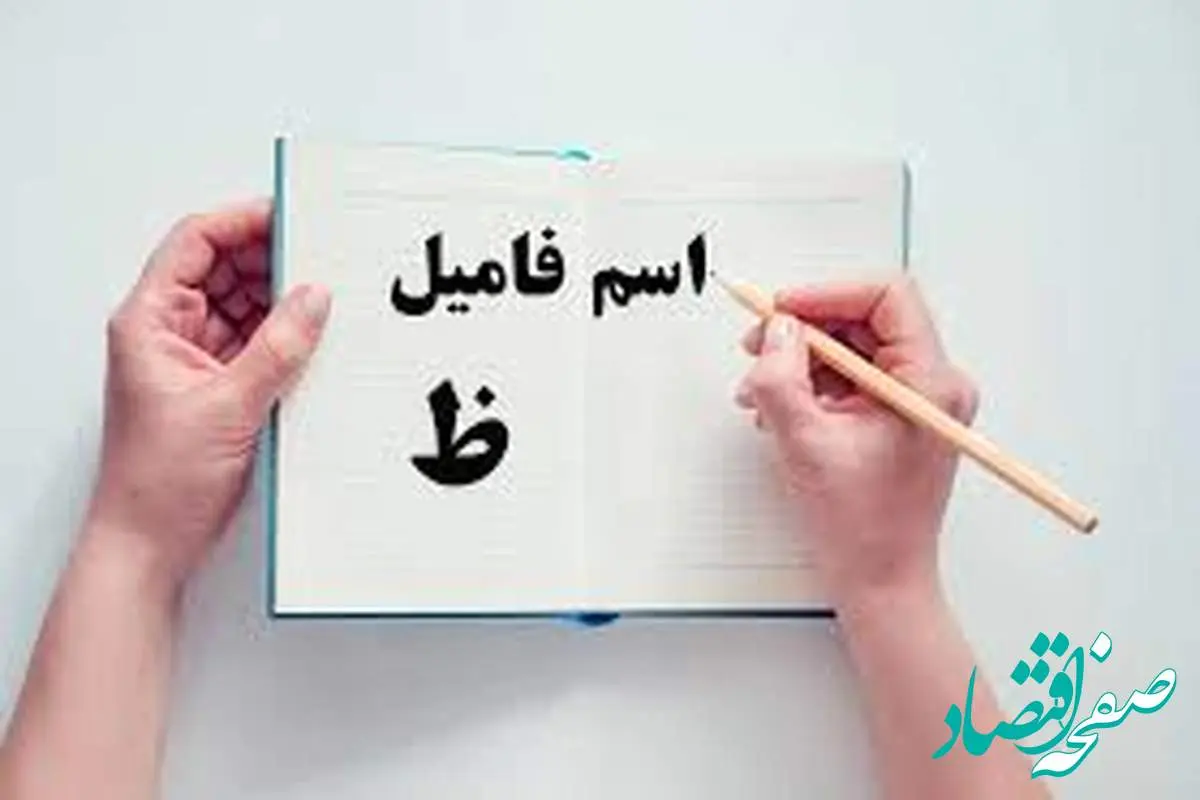 اسم فامیل
ظ
صفحه اقتصاد